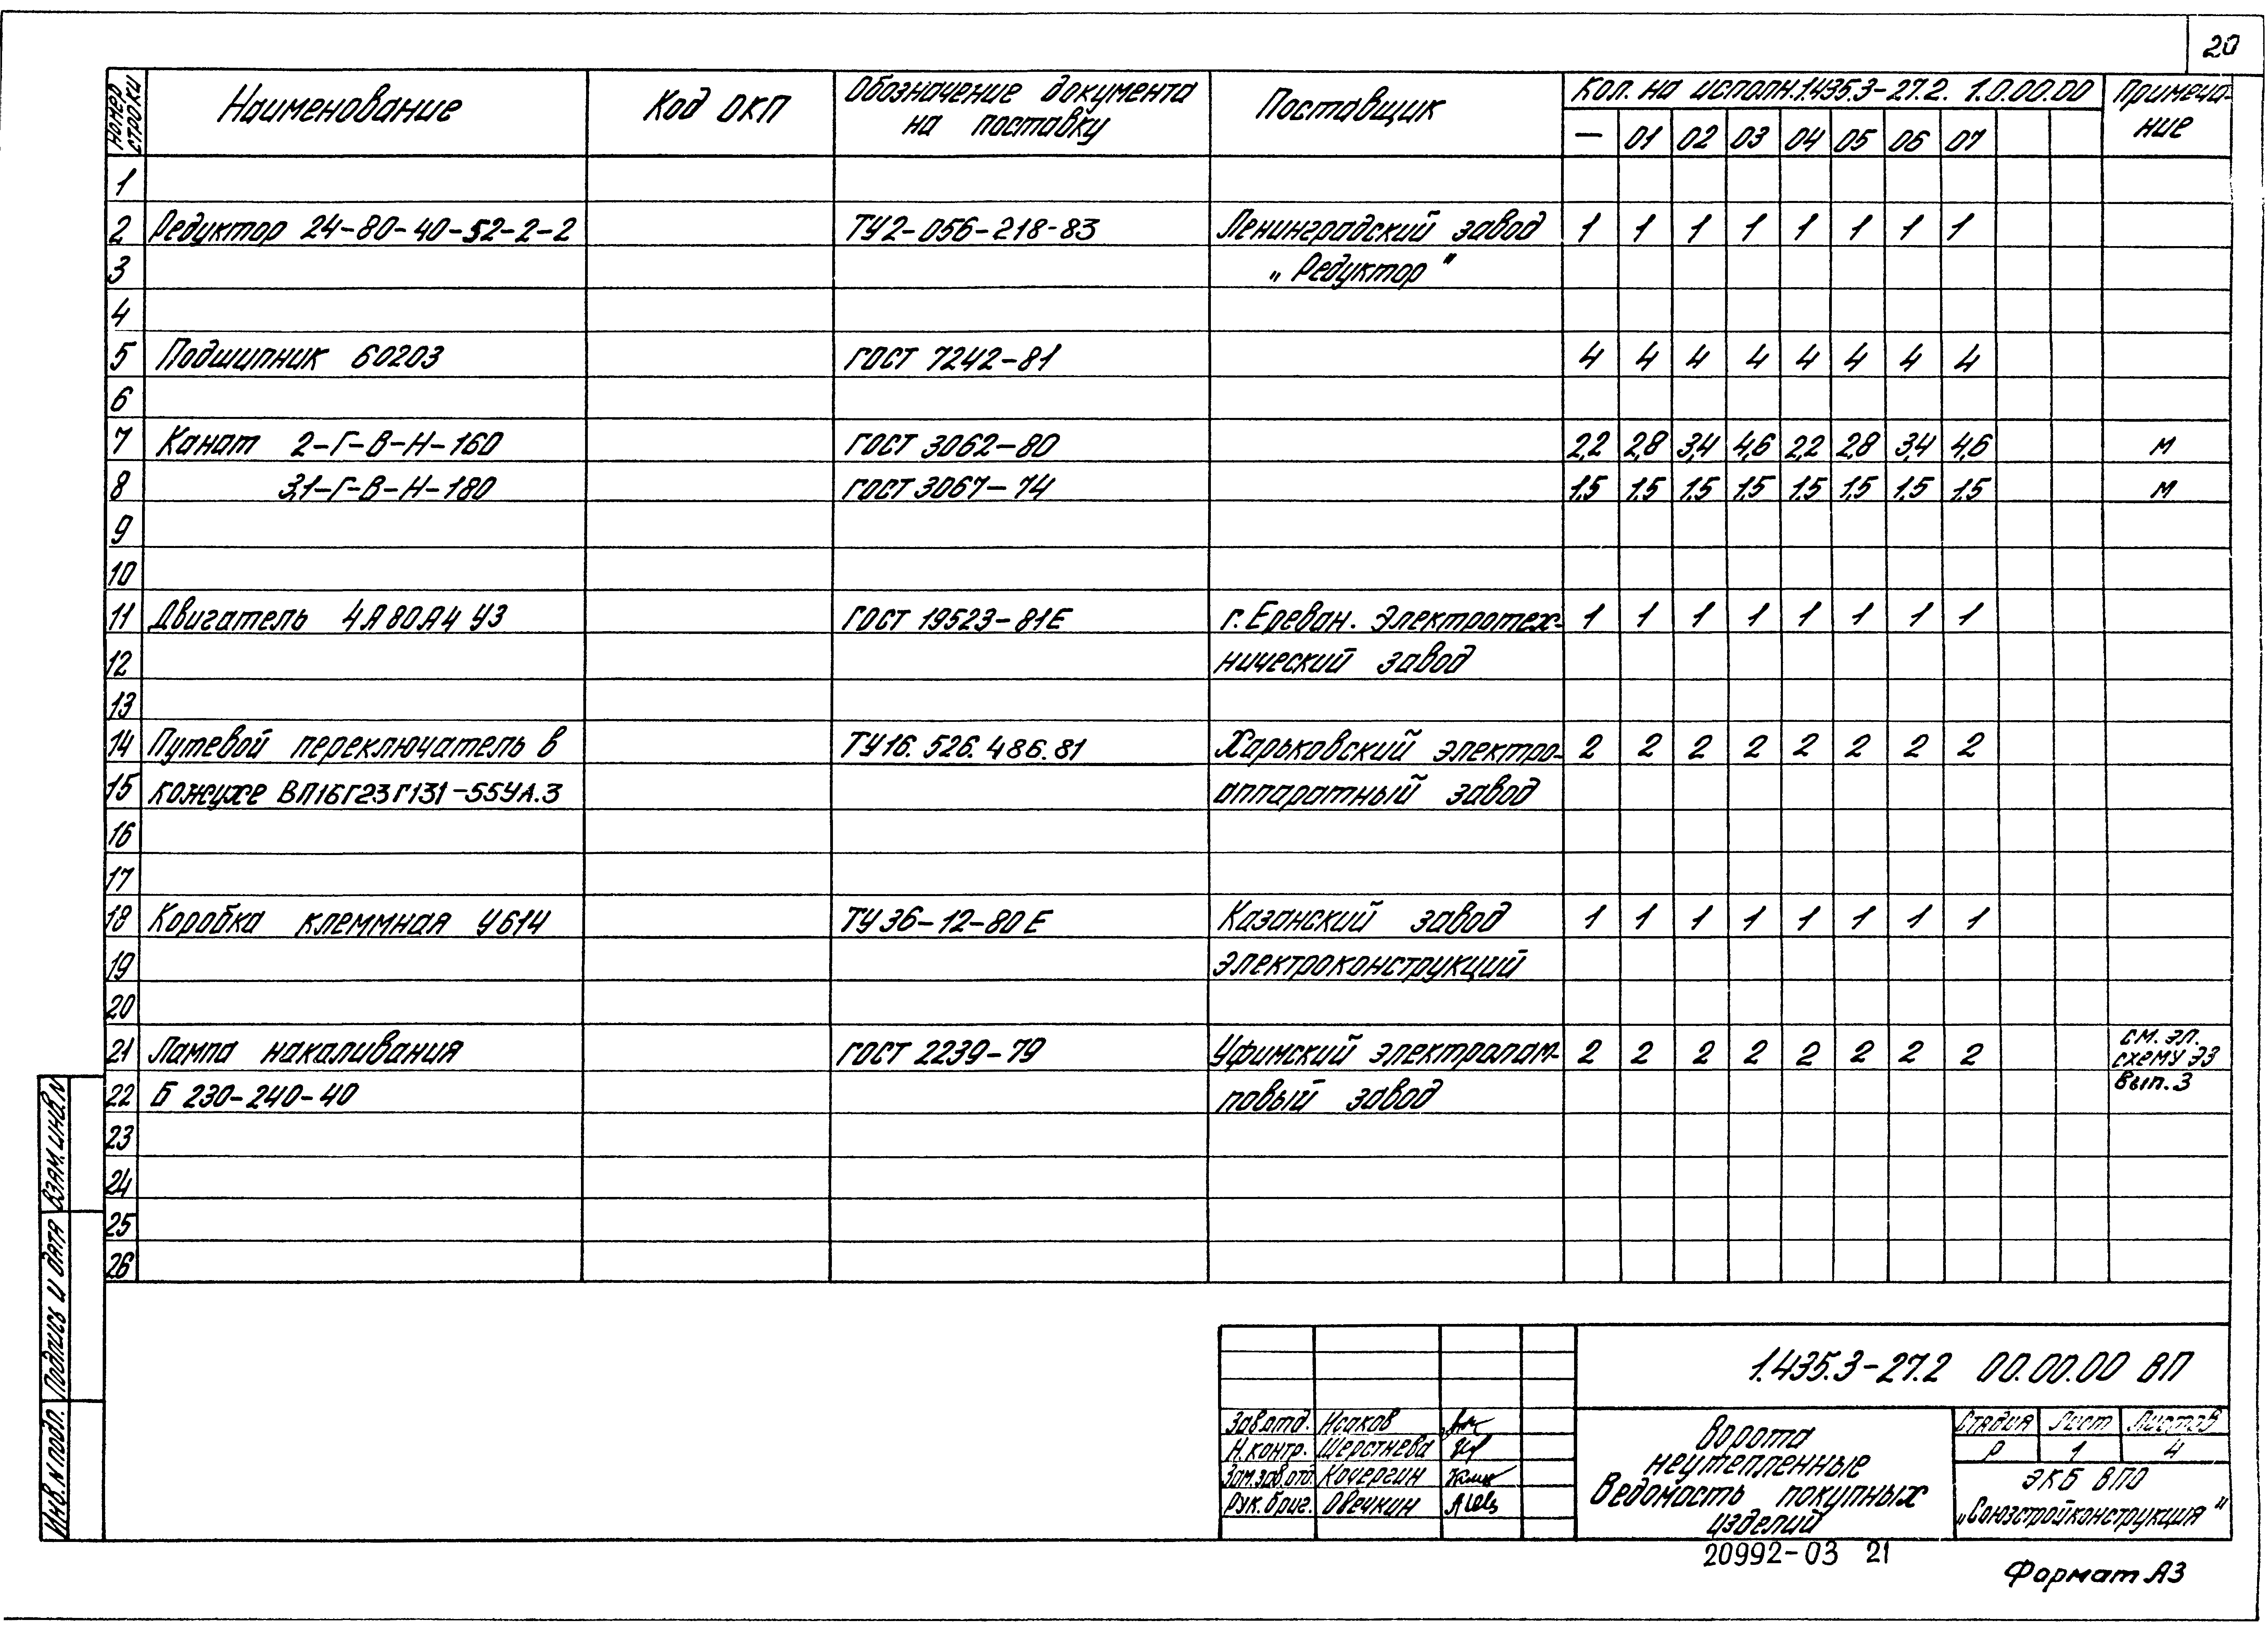 20
Номер строки Наименование Код ОКП Обозначение документа на поставку Поставщик Кол. на исполн.1.435.3-27.2. 1.0.00.00 Примеча-ние
— 01 02 03 04 05 06 07
1
2 Редуктор 24-80-40-52-2-2 ТУ2-056-218-83 Ленинградский завод 1 1 1 1 1 1 1 1
3 „Редуктор"
4
5 Подшипник 60203 ГОСТ 7242-81 4 4 4 4 4 4 4 4
6
7 Канат 2-Г-В-Н-160 ГОСТ 3062-80 2,2 2,8 3,4 4,6 2,2 2,8 3,4 4,6 м
8 3,1-Г-В-Н-180 ГОСТ 3067-74 1,5 1,5 1,5 1,5 1,5 1,5 1,5 1,5 м
9
10
11 Двигатель 4А80А4 У3 ГОСТ 19523-81Е г. Ереван. Электротех- 1 1 1 1 1 1 1 1
12 нический завод
13
14 Путевой переключатель в ТУ16.526.486.81 Харьковский электро- 2 2 2 2 2 2 2 2
15 кожухе ВП16Г23Г131-55УА.3 аппаратный завод
16
17
18 Коробка клеммная У614 ТУ36-12-80Е Казанский завод 1 1 1 1 1 1 1 1
19 электроконструкций
20
21 Лампа накаливания ГОСТ 2239-79 Уфимский электролам- 2 2 2 2 2 2 2 2 см. эл. схему ЭЗ
22 Б 230-240-40 повый завод вып.3
23
24
25
26
Взам. инв. N
Подпись и дата
Инв. N подл.
1.435.3-27.2 00.00.00 ВП
Зав.отд. Исаков
Н.контр. Шерстнева
Зам.зав.отд. Кочергин
Рук.бриг. Овечкин
Ворота
неутепленные
Ведомость покупных
изделий
Стадия Лист Листов
Р 1 4
ЭКБ ВПО
„Союзстройконструкция"
20992-03 21
Формат А3